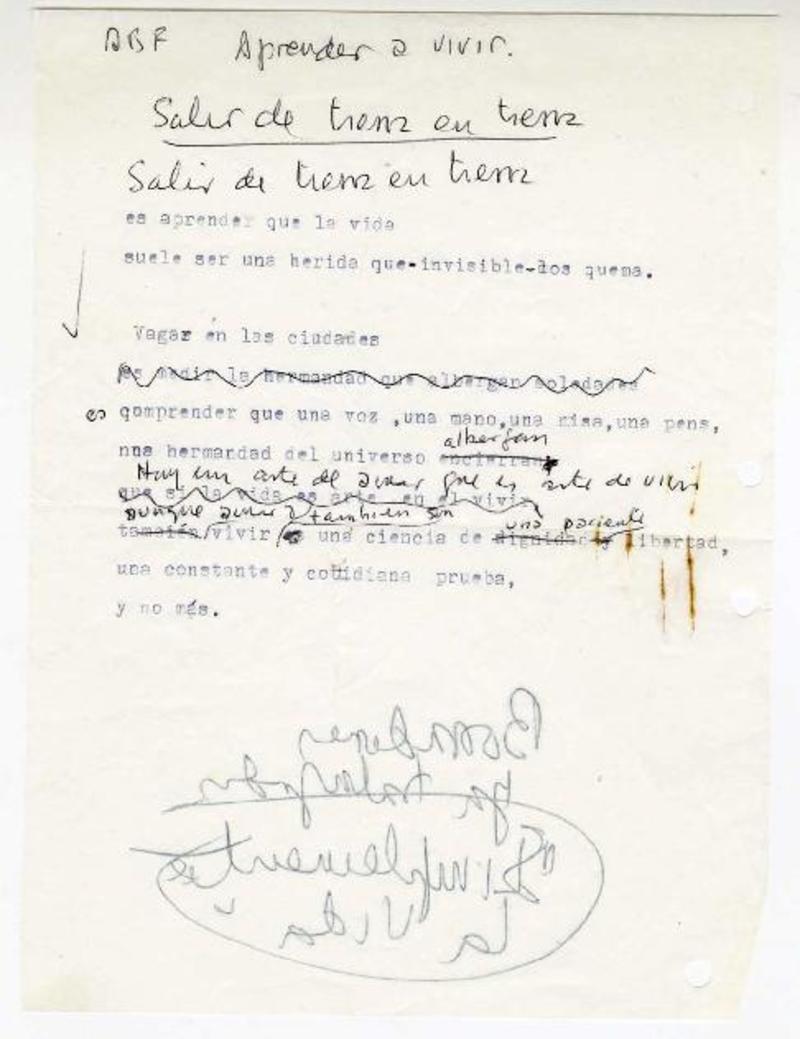 ABF Aprender a vivir.
Salir de tierra en tierra
Salir de tierra en tierra
es aprender que la vida
suele ser una herida que-invisible-dos quema.
Vagar en las ciudades
es medir la hermandad que albergan soledades
es qomprender que una voz ,una mano,una misa,una pena,
nna hermandad del universo encierran
albergan
Hay un arte de amar que es arte de vivir
que si la vida es arte en el vivir
aunque amar y también son
tamaién/vivir/es una ciencia de dignidad y libertad,
una paciente
una constante y cotidiana prueba,
y no más.
Bomberes
"Simplemente
la Vida